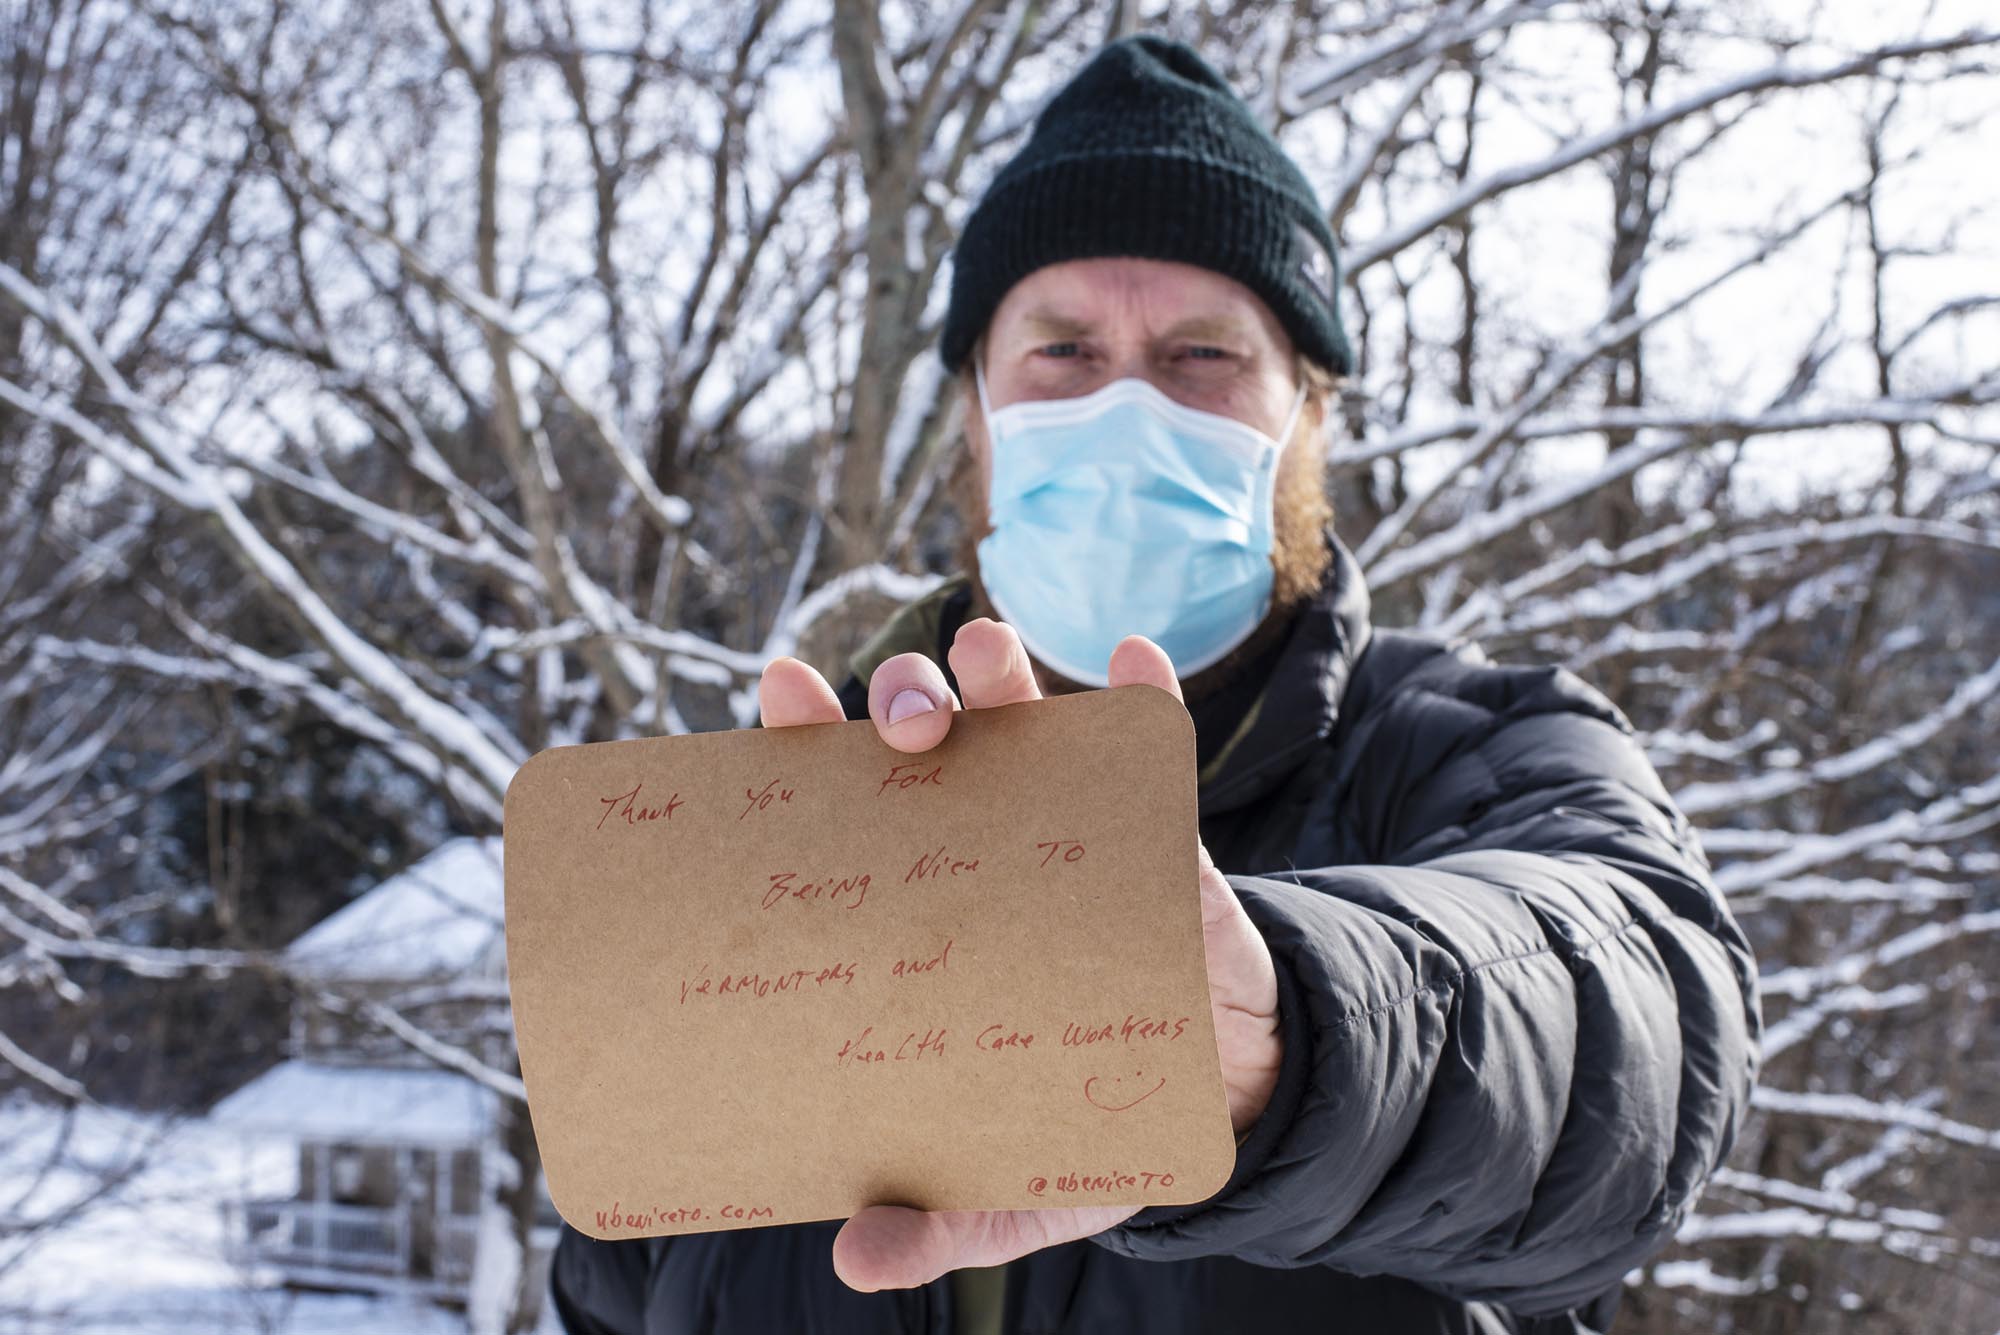 Thank You For
Being Nice To
Vermonters and
Health Care Workers
ubeniceto.com
@ubeniceTo